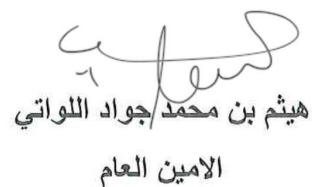 هيثم بن محمد جواد اللواتي
الامين العام